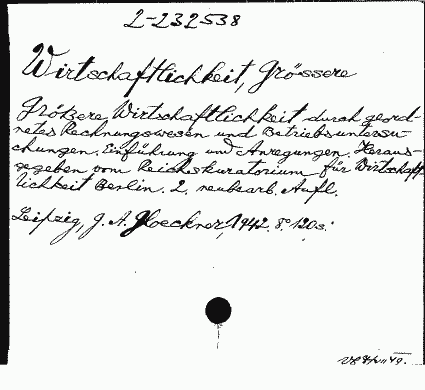 2-232538
Wirtschaftlichkeit, Grössere
Größere Wirtschaftlichkeit durch geord-
netes Rechnungswesen und Betriebsuntersu-
chungen. Einführung und Anregungen. Heraus-
gegeben vom Reichskuratorium für Wirtschaft-
lichkeit Berlin. 2. neubearb. Aufl.
Leipzig, G. A. Gloeckner, 1942. 8° 120 s.